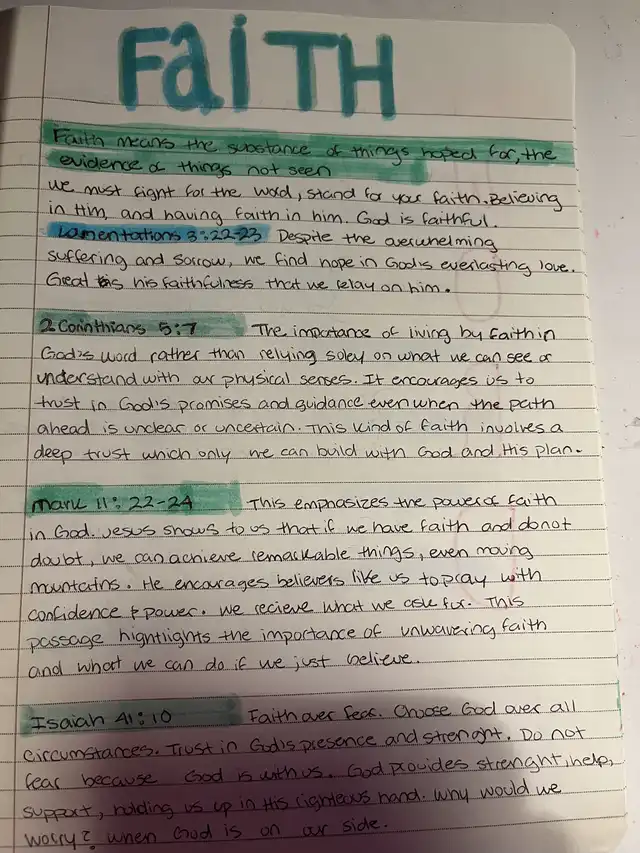 FAiTH
Faith means the substance of things hoped for, the
evidence of things not seen
we must fight for the word, stand for your faith. Believing
in Him, and having faith in him. God is faithful.
Lamentations 3:22-23 Despite the overwhelming
suffering and sorrow, we find hope in God's everlasting love.
Great is his faithfulness that we relay on him.
2 Corinthians 5:7 The importance of living by faith in
God's word rather than relying soley on what we can see or
understand with our physical senses. It encourages us to
trust in God's promises and guidance even when the path
ahead is unclear or uncertain. This kind of faith involves a
deep trust which only we can build with God and His plan.
Mark 11:22-24 This emphasizes the power of faith
in God. Jesus shows to us that if we have faith and do not
doubt, we can achieve remarkable things, even moving
mountains. He encourages believers like us to pray with
confidence & power. We recieve what we ask for. This
passage hightlights the importance of unwavering faith
and what we can do if we just believe.
Isaiah 41:10 Faith over fear. Choose God over all
circumstances. Trust in God's presence and strenght. Do not
fear because God is with us. God provides strenght, help,
support, holding us up in His righteous hand. Why would we
worry? when God is on our side.